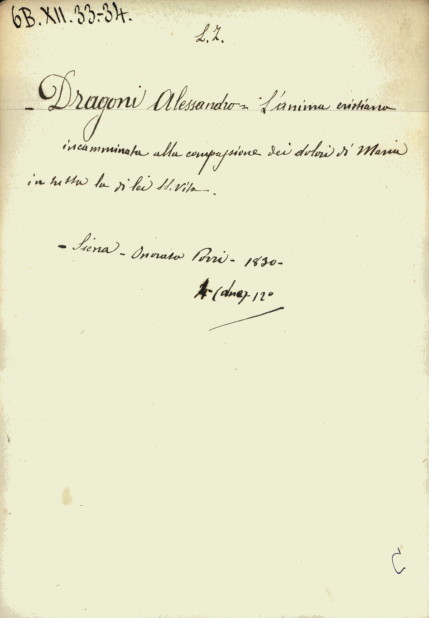 6B.XII.33-34.
L.Z.
- Dragoni Alessandro = L'anima cristiana
incamminata alla compassione dei dolori di Maria
in tutta la di lei SS. Vita.
- Siena - Onorato Porri - 1830 -
(due) - 12°
C